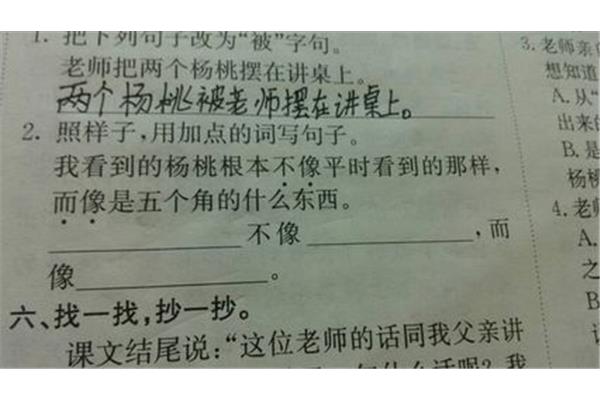 1. 把下列句子改为“被”字句。
老师把两个杨桃摆在讲桌上。
两个杨桃被老师摆在讲桌上。
2. 照样子,用加点的词写句子。
我看到的杨桃根本不像平时看到的那样,
而像是五个角的什么东西。
不像 ,而
像 。
六、找一找,抄一抄。
课文结尾说:“这位老师的话同我父亲讲
什么话呢? 我
3. 老师亲
想知道
A. 从“
出来的
B. 是
杨桃
4. 老师
A.
之
B